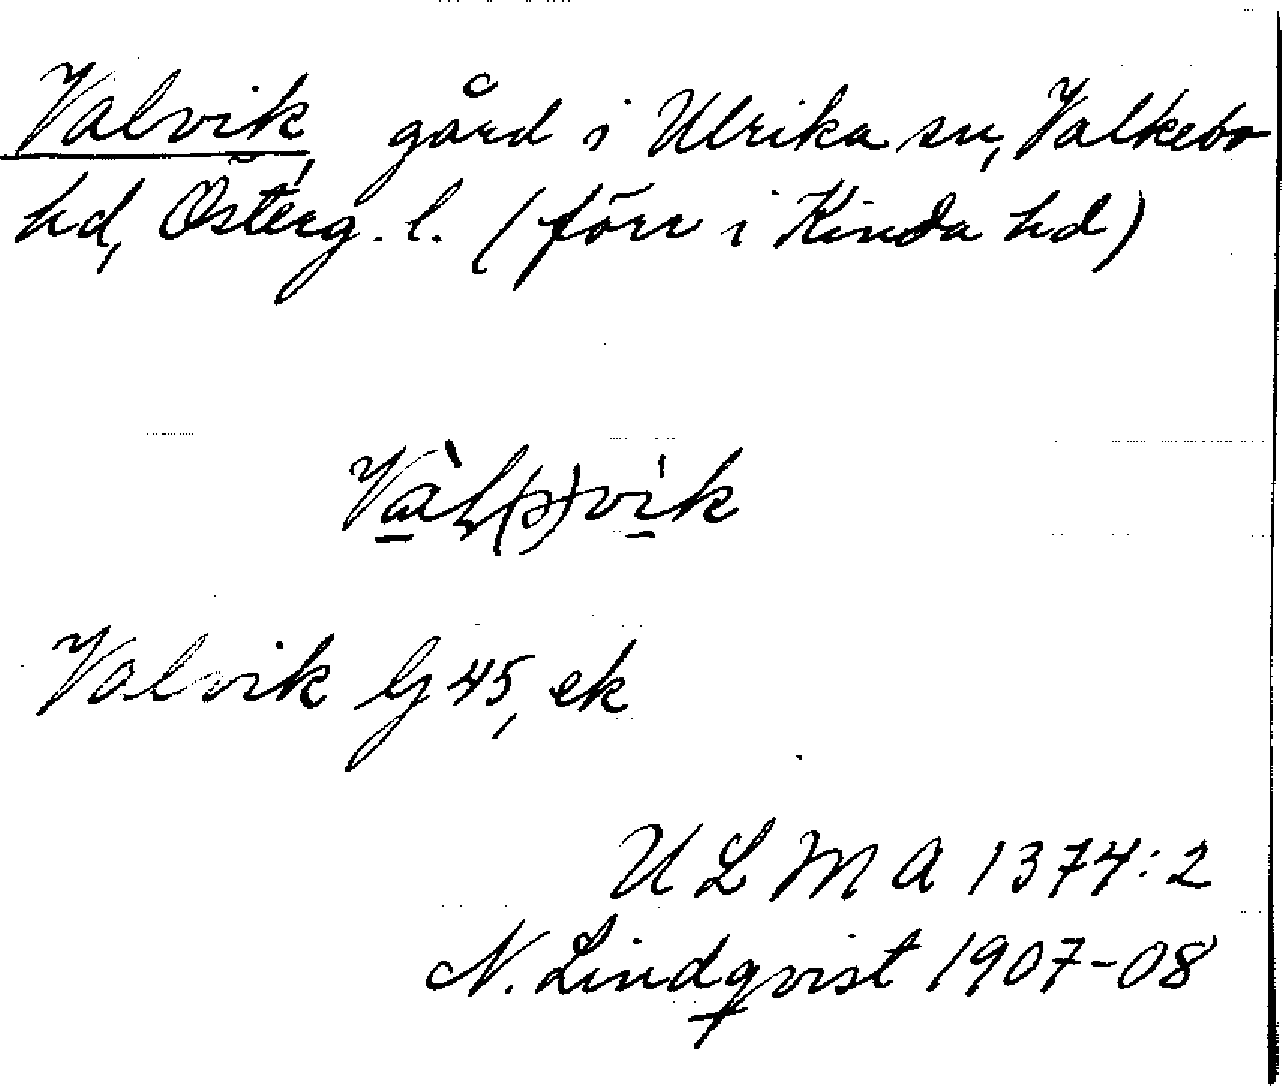 Valvik, gård i Ulrika sn, Valkebo
hd, Österg. l. (förr i Kinda hd)
Vàl(s)vik
Valvik G 45, ek
ULMA 1374:2
N. Lindqvist 1907-08